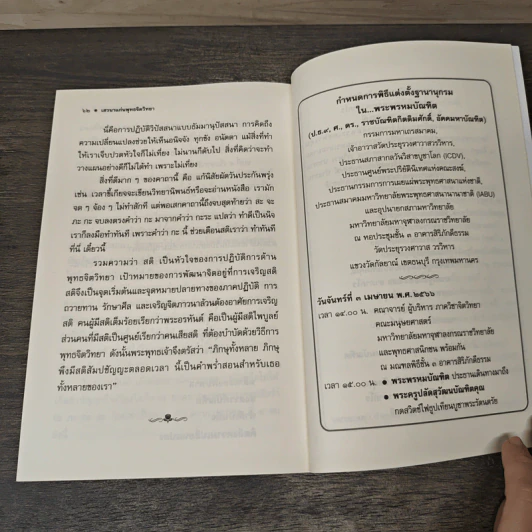 ๖๒ ● เสวนาแก่นพุทธจิตวิทยา
นี่คือการปฏิบัติวิปัสสนาแบบธัมมานุปัสสนา การคิดถึง
ความเปลี่ยนแปลงช่วยให้เห็นอนิจจัง ทุกขัง อนัตตา แม้สิ่งที่ทำ
ให้เราเจ็บปวดหัวใจก็ไม่เที่ยง ไม่นานก็ดับไป สิ่งที่คิดว่าจะทำ
วางแผนอย่างดีก็ไม่ได้ทำ เพราะไม่เที่ยง
สิ่งที่ดีมาก ๆ ของคาถานี้ คือ แก้นิสัยผัดวันประกันพรุ่ง
เช่น เวลาขี้เกียจจะเขียนวิทยานิพนธ์หรืออ่านหนังสือ เรามัก
จด ๆ จ้อง ๆ ไม่ทำสักที แต่พอเสกคาถานี้ถึงจบสุดท้ายว่า สะ จะ
ภะ กะ จบลงตรงคำว่า กะ มาจากคำว่า กะระ แปลว่า ทำดีเป็นนิจ
เราก็ลงมือทำทันที เพราะคำว่า กะ นี้ ช่วยเตือนสติเราว่า ทำทันที
ที่นี่ เดี๋ยวนี้
รวมความว่า สติ เป็นหัวใจของการปฏิบัติการด้าน
พุทธจิตวิทยา เป้าหมายของการพัฒนาจิตอยู่ที่การเจริญสติ
สติจึงเป็นจุดเริ่มต้นและจุดหมายปลายทางของภาคปฏิบัติ การ
ถวายทาน รักษาศีล และเจริญจิตภาวนาล้วนต้องอาศัยการเจริญ
สติ คนผู้มีสติเต็มร้อยเรียกว่าพระอรหันต์ คือเป็นผู้มีสติไพบูลย์
ส่วนคนที่มีสติเป็นศูนย์เรียกว่าคนเสียสติ ที่ต้องบำบัดด้วยวิธีการ
พุทธจิตวิทยา ดังนั้นพระพุทธเจ้าจึงตรัสว่า “ภิกษุทั้งหลาย ภิกษุ
พึงมีสติสัมปชัญญะตลอดเวลา นี้เป็นคำพร่ำสอนสำหรับเธอ
ทั้งหลายของเรา”
กำหนดการพิธีแต่งตั้งฐานานุกรม
ใน...พระพรหมบัณฑิต
(ป.ธ.๙, ศ., ดร., ราชบัณฑิตกิตติมศักดิ์, อัคคมหาบัณฑิต)
กรรมการมหาเถรสมาคม,
เจ้าอาวาสวัดประยุรวงศาวาสวรวิหาร,
ประธานสภาสากลวันวิสาขบูชาโลก (ICDV),
ประธานศูนย์พระปริยัตินิเทศแห่งคณะสงฆ์,
ประธานกรรมการการเผยแผ่พระพุทธศาสนาแห่งชาติ,
ประธานสมาคมมหาวิทยาลัยพระพุทธศาสนานานาชาติ (IABU)
และอุปนายกสภามหาวิทยาลัย
มหาวิทยาลัยมหาจุฬาลงกรณราชวิทยาลัย
ณ หอประชุมชั้น ๓ อาคารสิริภักดีธรรม
วัดประยุรวงศาวาส วรวิหาร
แขวงวัดกัลยาณ์ เขตธนบุรี กรุงเทพมหานคร
วันจันทร์ที่ ๓ เมษายน พ.ศ.๒๕๖๖
เวลา ๑๔.๐๐ น. คณาจารย์ ผู้บริหาร ภาควิชาจิตวิทยา
คณะมนุษยศาสตร์
มหาวิทยาลัยมหาจุฬาลงกรณราชวิทยาลัย
และพุทธศาสนิกชน พร้อมกัน
ณ มณฑลพิธีชั้น ๓ อาคารสิริภักดีธรรม
เวลา ๑๕.๐๐ น. ● พระพรหมบัณฑิต ประธานเดินทางมาถึง
● พระครูปลัดสุวัฒนบัณฑิตคุณ
กดสวิตช์ไฟธูปเทียนบูชาพระรัตนตรัย